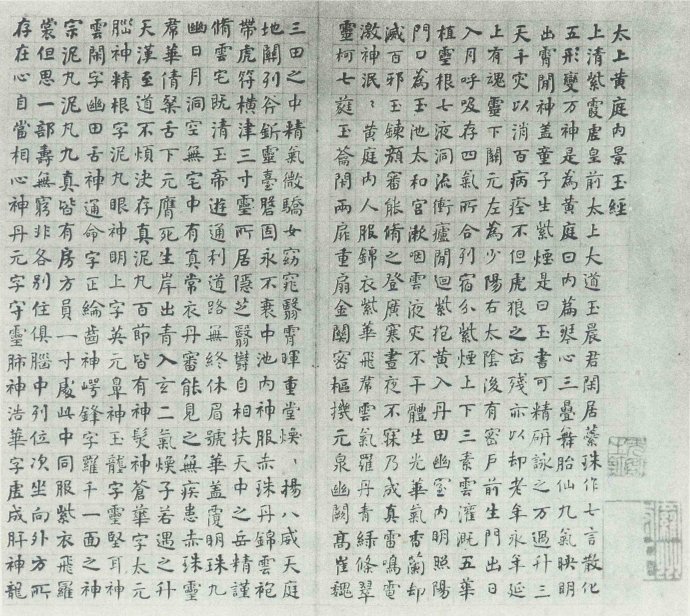 太上黄庭內景玉經
上清紫霞虛皇前太上大道玉晨君閑居蘂珠作七言散化
五形變万神是為黄庭曰內篇琴心三疊舞胎仙九氣映明
出霄閒神盖童子生紫煙是曰玉書可精研詠之万過升三
天千灾以消百病痊不但虎狼之㐫残亦以却老年永年延
上有魂靈下關元左為少陽右太陰後有密戶前生門出日
入月呼吸存四氣所合列宿分紫煙上下三素雲灌漑五華
植靈根七液洞流衝廬閒迴紫抱黄入丹田幽室內明照陽
門口為玉池太和宫漱咽雲液灾不干體生光華氣香蘭却
滅百邪玉鍊顔審能脩之登廣寒晝夜不寐乃成真雷鳴電
激神泯〻黄庭內人服錦衣紫華飛帬雲氣羅丹青緑條翠
靈柯七蕤玉籥閇兩扉重扇金關密樞機元泉幽闕高崖巍
三田之中精氣微驕女窈窕翳霄暉重堂煥〻揚八威天庭
地關列斧斨靈臺盤固永不衰中池內神服赤珠丹錦雲袍
帶虎符横津三寸靈所居隱芝翳鬱自相扶天中之岳精謹
脩雲宅既清玉帝遊通利道路無終休眉號華盖覆明珠九
幽日月洞空無宅中有真常衣丹審能見之無疾患赤珠靈
帬華倩粲舌下元膺死生岸出青入玄二氣煥子若遇之升
天漢至道不煩決存真泥丸百節皆有神髮神蒼華字太元
腦神精根字泥丸眼神明上字英元鼻神玉龍字靈堅耳神
雲閑字幽田舌神通命字正綸齒神崿鋒字羅千一面之神
宗泥丸泥丸九真皆有房方員一寸處此中同服紫衣飛羅
裳但思一部壽無窮非各別住俱腦中列位次坐向外方所
存在心自當相心神丹元字守靈肺神浩華字虛成肝神龍